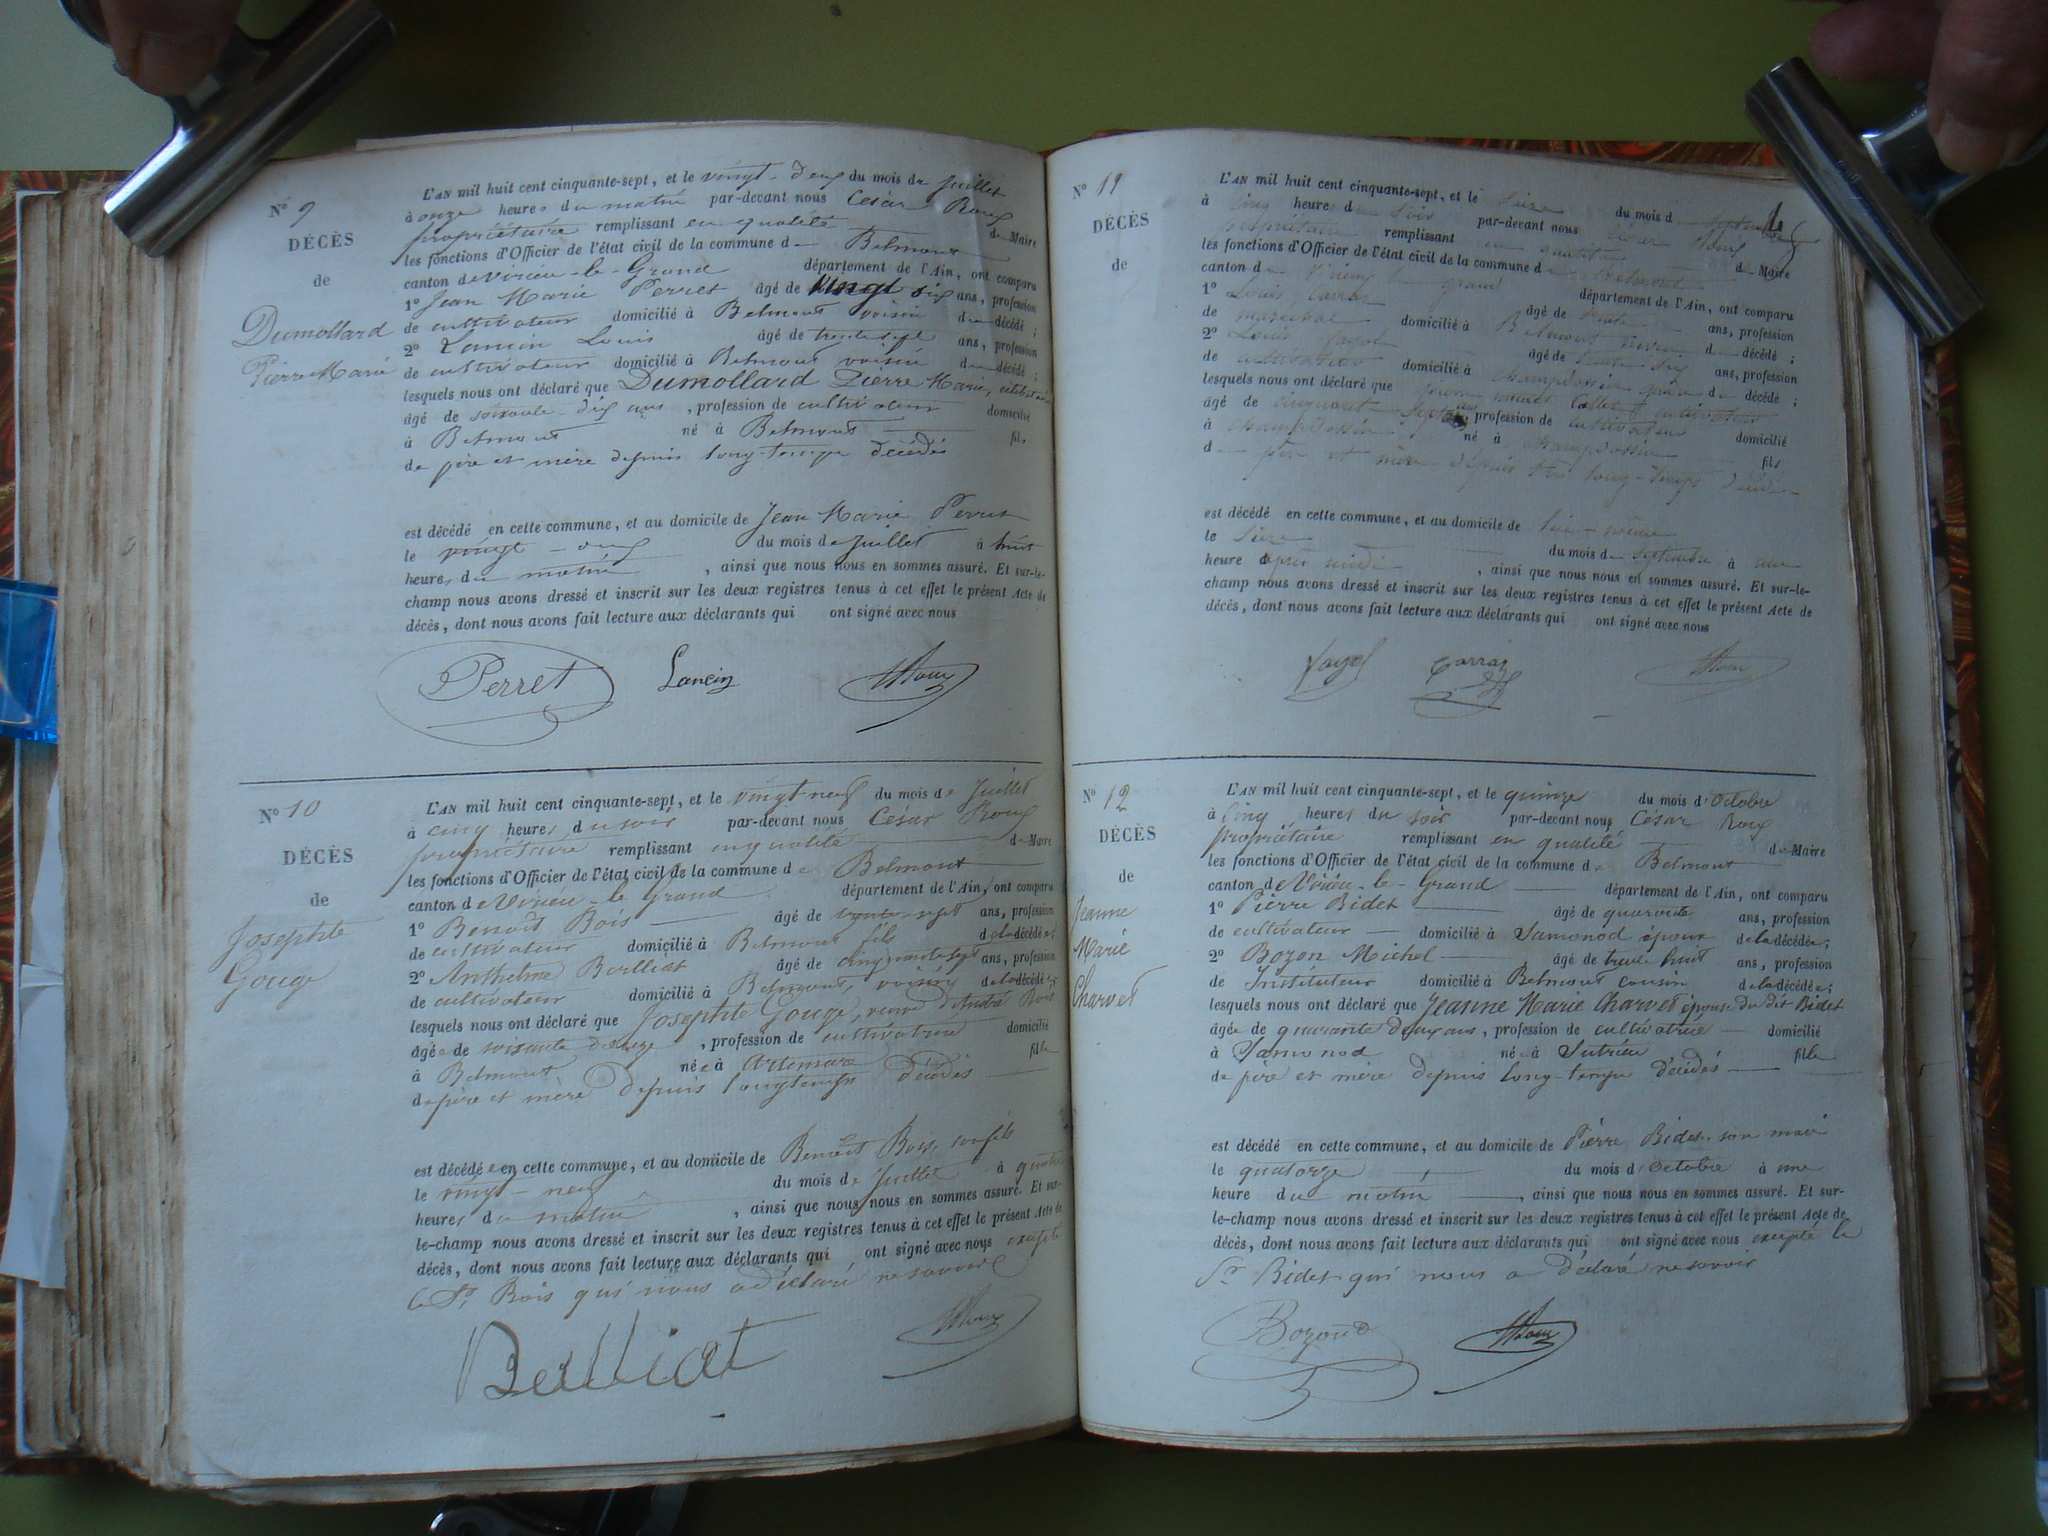 N° 9
DÉCÈS
de
Dumollard
Pierre Marie
L'AN mil huit cent cinquante-sept, et le vingt-deux du mois de Juillet
à onze heures du matin par-devant nous César Roux
propriétaire remplissant en qualité de Maire
les fonctions d'Officier de l'état civil de la commune de Belmont
canton de Virieu-le-Grand département de l'Ain, ont comparu
1° Jean Marie Perret âgé de vingt six ans, profession
de cultivateur domicilié à Belmont voisin du décédé ;
2° Lancin Louis âgé de trente sept ans, profession
de cultivateur domicilié à Belmont voisin du décédé ;
lesquels nous ont déclaré que Dumollard Pierre Marie, célibataire
âgé de soixante-dix ans, profession de cultivateur domicilié
à Belmont né à Belmont fils
de père et mère depuis long-temps décédés
est décédé en cette commune, et au domicile de Jean Marie Perret
le vingt-deux du mois de Juillet à huit
heures du matin, ainsi que nous nous en sommes assuré. Et sur-le-
champ nous avons dressé et inscrit sur les deux registres tenus à cet effet le présent Acte de
décès, dont nous avons fait lecture aux déclarants qui ont signé avec nous
Perret Lancin Roux
N° 10
DÉCÈS
de
Josephte
Gouge
L'AN mil huit cent cinquante-sept, et le vingt-neuf du mois de Juillet
à cinq heures du soir par-devant nous César Roux
propriétaire remplissant en qualité de Maire
les fonctions d'Officier de l'état civil de la commune de Belmont
canton de Virieu-le-Grand département de l'Ain, ont comparu
1° Benoît Bois âgé de trente-sept ans, profession
de cultivateur domicilié à Belmont fils de la décédée ;
2° Anthelme Bailliat âgé de cinquante sept ans, profession
de cultivateur domicilié à Belmont, voisin de la décédée ;
lesquels nous ont déclaré que Josephte Gouge, veuve d'André Bois
âgée de soixante douze, profession de cultivatrice domicilié
à Belmont née à Artemare fille
de père et mère depuis longtemps décédés
est décédée en cette commune, et au domicile de Benoît Bois, son fils
le vingt-neuf du mois de Juillet à quatre
heures du matin, ainsi que nous nous en sommes assuré. Et sur-
le-champ nous avons dressé et inscrit sur les deux registres tenus à cet effet le présent Acte de
décès, dont nous avons fait lecture aux déclarants qui ont signé avec nous excepté
le Sr. Bois qui nous a déclaré ne savoir
Bailliat Roux
N° 11
DÉCÈS
de
L'AN mil huit cent cinquante-sept, et le seize du mois de septembre
à cinq heures du soir par-devant nous César Roux
propriétaire remplissant en qualité de Maire
les fonctions d'Officier de l'état civil de la commune de Belmont
canton de Virieu le grand département de l'Ain, ont comparu
1° Louis Carraz âgé de trente ans, profession
de maréchal domicilié à Belmont du décédé ;
2° Louis Fayol âgé de trente six ans, profession
de cultivateur domicilié à Champdossin du décédé ;
lesquels nous ont déclaré que Collet
âgé de cinquante sept ans, profession de cultivateur domicilié
à Champdossin né à Champdossin fils
de père et mère depuis très long-temps décédés
est décédé en cette commune, et au domicile de lui-même
le seize du mois de septembre à une
heure après midi, ainsi que nous nous en sommes assuré. Et sur-le-
champ nous avons dressé et inscrit sur les deux registres tenus à cet effet le présent Acte de
décès, dont nous avons fait lecture aux déclarants qui ont signé avec nous
Fayol Carraz Roux
N° 12
DÉCÈS
de
Jeanne
Marie
Charvet
L'AN mil huit cent cinquante-sept, et le quinze du mois d'Octobre
à cinq heures du soir par-devant nous César Roux
propriétaire remplissant en qualité de Maire
les fonctions d'Officier de l'état civil de la commune de Belmont
canton de Virieu-le-Grand département de l'Ain, ont comparu
1° Pierre Bidet âgé de quarante ans, profession
de cultivateur domicilié à Samonod époux de la décédée ;
2° Bozon Michel âgé de trente huit ans, profession
de Instituteur domicilié à Belmont cousin de la décédée ;
lesquels nous ont déclaré que Jeanne Marie Charvet épouse du dit Bidet
âgée de quarante deux ans, profession de cultivatrice domicilié
à Samonod née à Sutrieu fille
de père et mère depuis long-temps décédés
est décédé en cette commune, et au domicile de Pierre Bidet son mari
le quatorze du mois d'Octobre à une
heure du matin, ainsi que nous nous en sommes assuré. Et sur-
le-champ nous avons dressé et inscrit sur les deux registres tenus à cet effet le présent Acte de
décès, dont nous avons fait lecture aux déclarants qui ont signé avec nous excepté le
Sr Bidet qui nous a déclaré ne savoir
Bozon Roux